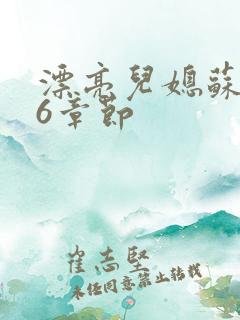 漂亮兒媳蘇
6章節
崔志堅
未经同意禁止转载